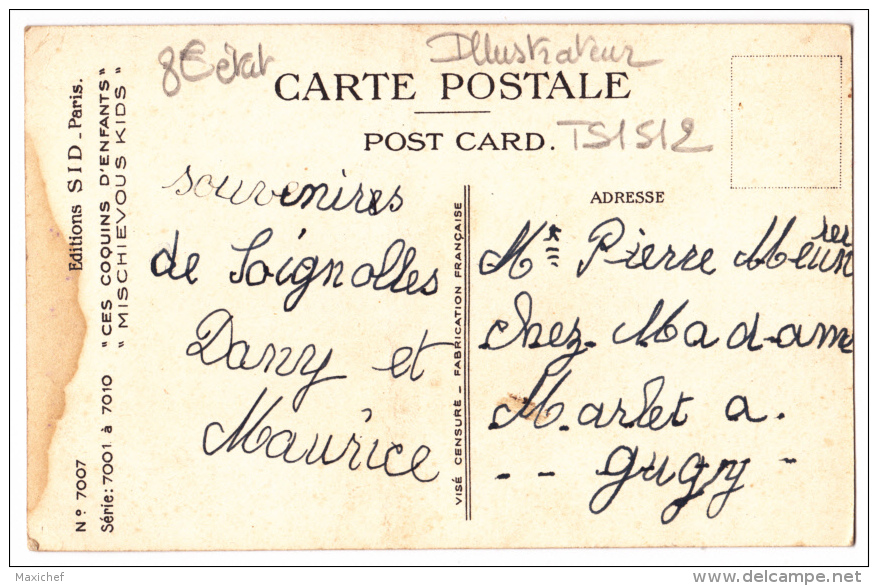 8€ état
Illustrateur
CARTE POSTALE
POST CARD.
TS1S12
souvenires
de Soignolles
Dany et
Maurice
ADRESSE
Mr Pierre Meunrer
chez Madame
Marlet a.
-- gugny -
VISÉ CENSURE – FABRICATION FRANÇAISE
Editions SID - Paris.
"CES COQUINS D'ENFANTS"
"MISCHIEVOUS KIDS"
Nº 7007
Série: 7001 à 7010
Maxichef
http://www.delcampe.net